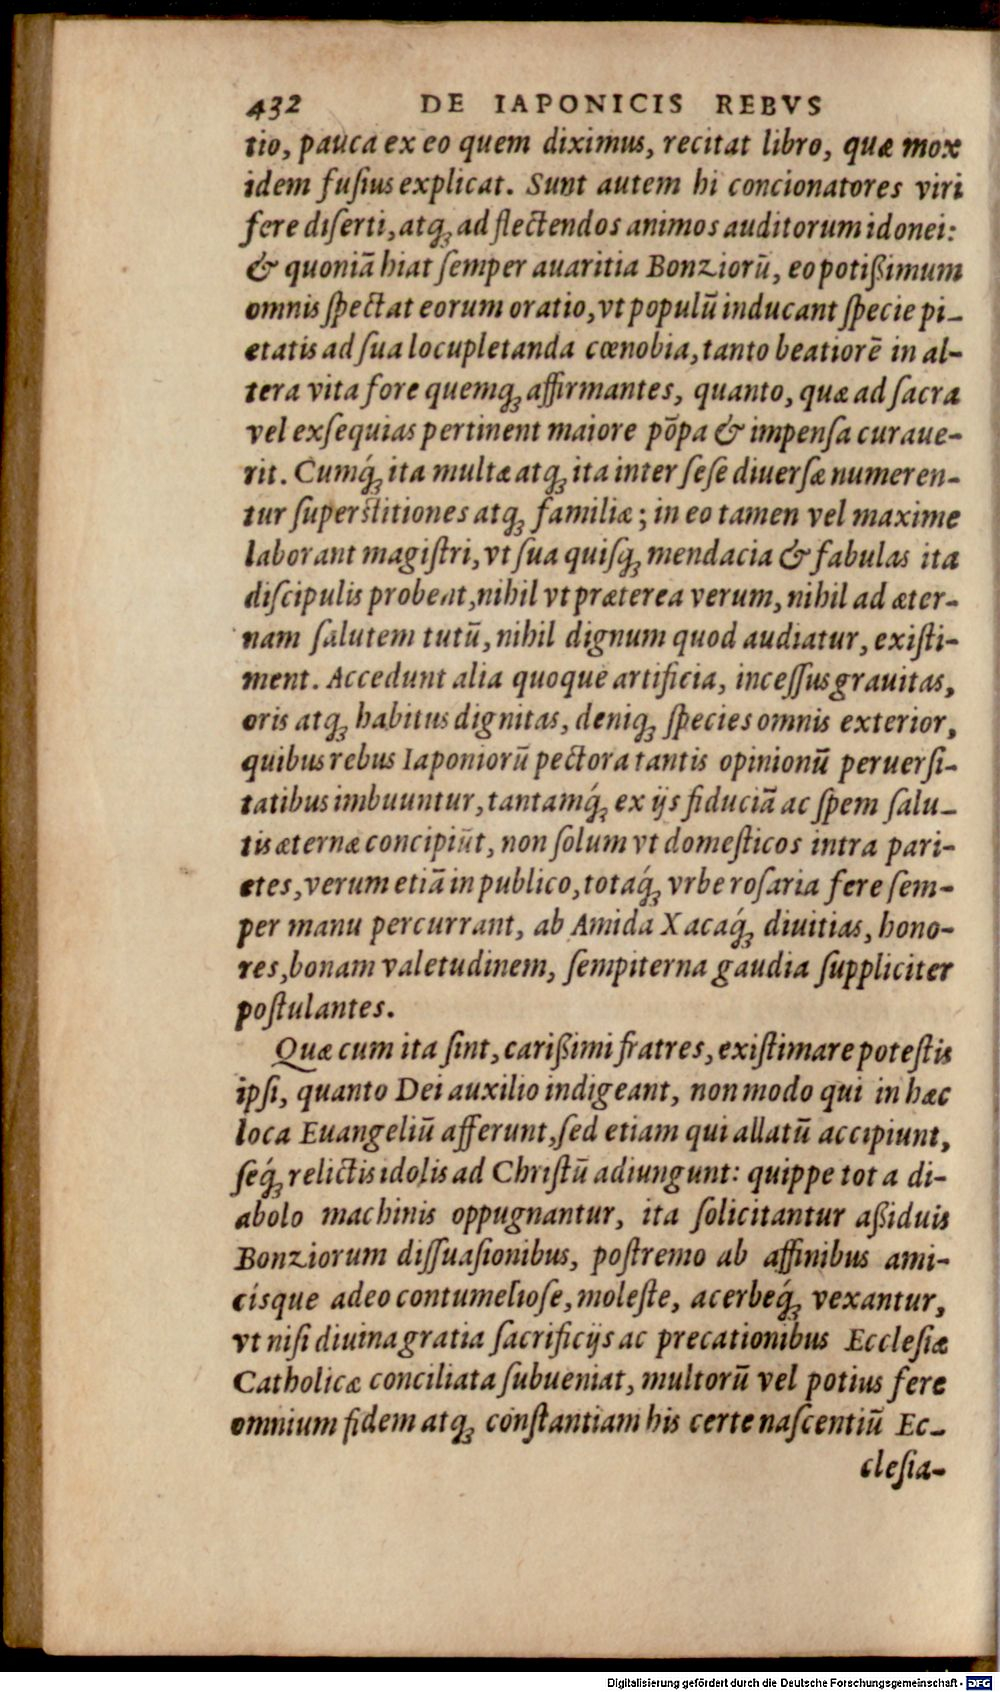 432 DE IAPONICIS REBVS
tio, pauca ex eo quem diximus, recitat libro, quæ mox
idem fuſius explicat. Sunt autem hi concionatores viri
fere diſerti, atq́ꝫ ad flectendos animos auditorum idonei:
& quoniã hiat ſemper auaritia Bonziorũ, eo potißimum
omnis ſpectat eorum oratio, vt populũ inducant ſpecie pi-
etatis ad ſua locupletanda cœnobia, tanto beatiorẽ in al-
tera vita fore quemqꝫ affirmantes, quanto, quæ ad ſacra
vel exſequias pertinent maiore põpa & impenſa curaue-
rit. Cumq́ꝫ ita multæ atqꝫ ita inter ſeſe diuerſæ numeren-
tur superſtitiones atqꝫ familiæ; in eo tamen vel maxime
laborant magiſtri, vt ſua quiſqꝫ mendacia & fabulas ita
diſcipulis probent, nihil vt præterea verum, nihil ad æter-
nam ſalutem tutũ, nihil dignum quod audiatur, exiſti-
ment. Accedunt alia quoque artificia, inceſſus grauitas,
oris atqꝫ habitus dignitas, deniqꝫ ſpecies omnis exterior,
quibus rebus Iaponiorũ pectora tantis opinionũ peruerſi-
tatibus imbuuntur, tantamq́ꝫ ex ijs fiduciã ac ſpem ſalu-
tis æternæ concipiũt, non ſolum vt domeſticos intra pari-
etes, verum etiã in publico, totaq́ꝫ vrbe roſaria fere ſem-
per manu percurrant, ab Amida Xacaq́ꝫ diuitias, hono-
res, bonam valetudinem, ſempiterna gaudia ſuppliciter
poſtulantes.
Quæ cum ita ſint, carißimi fratres, exiſtimare poteſtis
ipſi, quanto Dei auxilio indigeant, non modo qui in hæc
loca Euangeliũ afferunt, ſed etiam qui allatũ accipiunt,
ſeq́ꝫ relictis idolis ad Chriſtũ adiungunt: quippe tot a di-
abolo machinis oppugnantur, ita ſolicitantur aßiduis
Bonziorum diſſuaſionibus, poſtremo ab affinibus ami-
cisque adeo contumelioſe, moleſte, acerbeq́ꝫ vexantur,
vt niſi diuina gratia ſacrificijs ac precationibus Eccleſiæ
Catholicæ conciliata ſubueniat, multorũ vel potius fere
omnium fidem atqꝫ conſtantiam his certe naſcentiũ Ec-
cleſia-
Digitalisierung gefördert durch die Deutsche Forschungsgemeinschaft - DFG